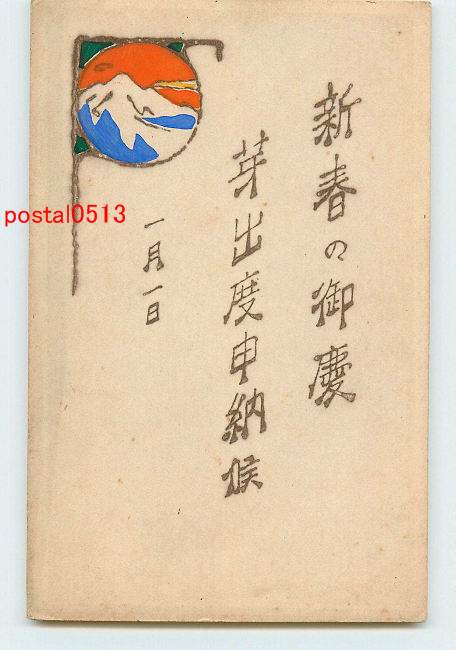 新春の御慶
芽出度申納候
一月一日
postal0513